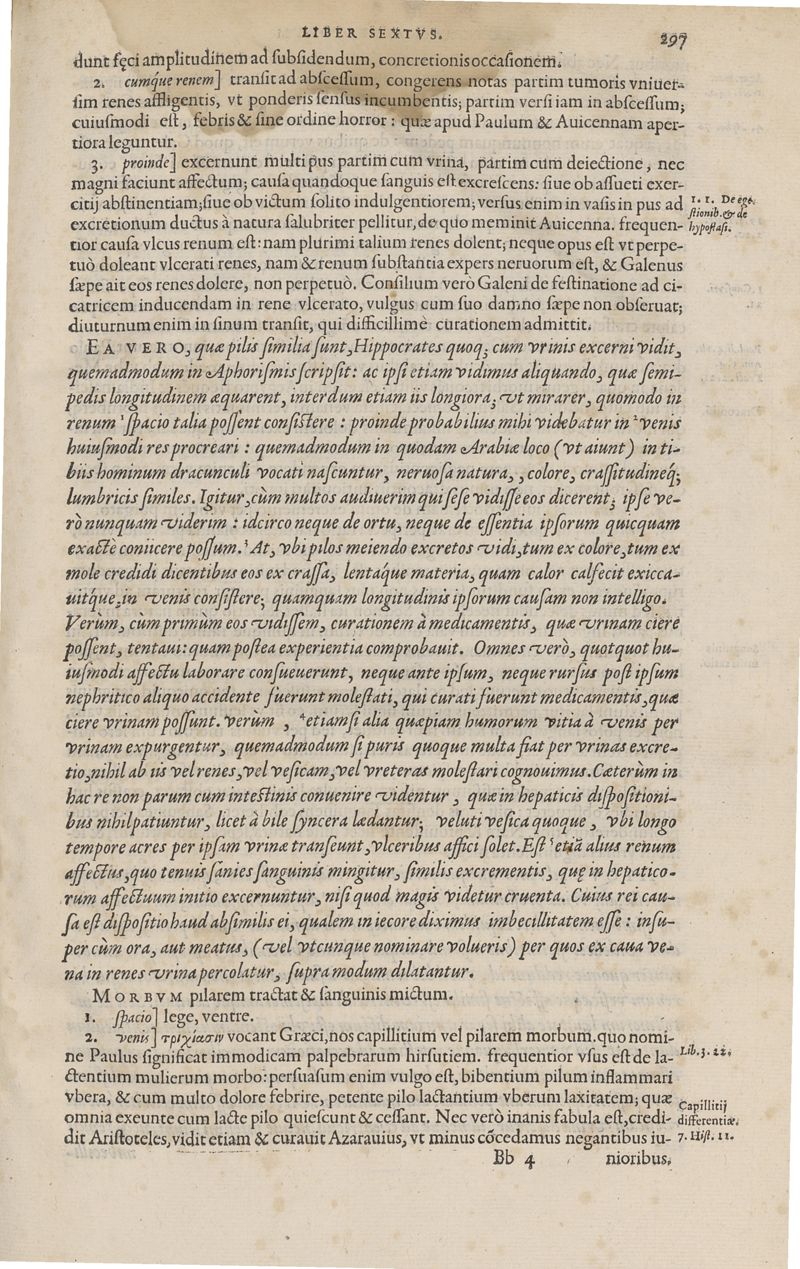 LIBER SEXTVS.
297
dunt fęci amplitudinem ad ſubſidendum, concretionis occaſionem.
2. cumq́ue renem] tranſit ad abſceſſum, congerens notas partim tumoris vniuer-
ſim renes affligentis, vt ponderis ſenſus incumbentis; partim verſi iam in abſceſſum;
cuiuſmodi eſt, febris & ſine ordine horror: quæ apud Paulum & Auicennam aper-
tiora leguntur.
3. proinde] excernunt multi pus partim cum vrina, partim cum deiectione, nec
magni faciunt affectum; cauſa quandoque ſanguis eſt excreſcens: ſiue ob aſſueti exer-
citij abſtinentiam; ſiue ob victum ſolito indulgentiorem; verſus enim in vaſis in pus ad
excretionum ductus à natura ſalubriter pellitur, de quo meminit Auicenna. frequen-
tior cauſa vlcus renum eſt: nam plurimi talium renes dolent; neque opus eſt vt perpe-
tuò doleant vlcerati renes, nam & renum ſubſtantia expers neruorum eſt, & Galenus
ſæpe ait eos renes dolere, non perpetuò. Conſilium verò Galeni de feſtinatione ad ci-
catricem inducendam in rene vlcerato, vulgus cum ſuo damno ſæpe non obſeruat;
diuturnum enim in ſinum tranſit, qui difficillimè curationem admittit.
1. 1. De egé.
ſtionib. & de
hypoſtaſi.
EA VERO, quæ pilis ſimilia ſunt, Hippocrates quoq; cum vrinis excerni vidit,
quemadmodum in Aphoriſmis ſcripſit: ac ipſi etiam vidimus aliquando, quæ ſemi-
pedis longitudinem æquarent, interdum etiam iis longiora; vt mirarer, quomodo in
renum ¹ſpacio talia poſſent conſiſtere: proinde probabilius mihi videbatur in ²venis
huiuſmodi res procreari: quemadmodum in quodam Arabiæ loco (vt aiunt) in ti-
biis hominum dracunculi vocati naſcuntur, neruoſa natura, , colore, craſſitudineq́;
lumbricis ſimiles. Igitur, cùm multos audiuerim qui ſeſe vidiſſe eos dicerent; ipſe ve-
rò nunquam viderim: idcirco neque de ortu, neque de eſſentia ipſorum quicquam
exactè coniicere poſſum.³ At, vbi pilos meiendo excretos vidi, tum ex colore, tum ex
mole credidi dicentibus eos ex craſſa, lentáque materia, quam calor calfecit exicca-
uitq́ue, in venis conſiſtere; quamquam longitudinis ipſorum cauſam non intelligo.
Verùm, cùm primùm eos vidiſſem, curationem à medicamentis, quæ vrinam ciere
poſſent, tentaui: quam poſtea experientia comprobauit. Omnes verò, quotquot hu-
iuſmodi affectu laborare conſueuerunt, neque ante ipſum, neque rurſus poſt ipſum
nephritico aliquo accidente fuerunt moleſtati, qui curati fuerunt medicamentis, quæ
ciere vrinam poſſunt. Verùm , ⁴etiamſi alia quæpiam humorum vitia à venis per
vrinam expurgentur, quemadmodum ſi puris quoque multa fiat per vrinas excre-
tio, nihil ab iis vel renes, vel veſicam, vel vreteras moleſtari cognouimus. Cæterùm in
hac re non parum cum inteſtinis conuenire videntur, quæ in hepaticis diſpoſitioni-
bus nihil patiuntur, licet à bile ſyncera lædantur; veluti veſica quoque, vbi longo
tempore acres per ipſam vrinæ tranſeunt, vlceribus affici ſolet. Eſt ⁵etiã alius renum
affectus, quo tenuis ſanies ſanguinis mingitur, ſimilis excrementis, quę in hepatico-
rum affectuum initio excernuntur, niſi quod magis videtur cruenta. Cuius rei cau-
ſa eſt diſpoſitio haud abſimilis ei, qualem in iecore diximus imbecillitatem eſſe: inſu-
per cùm ora, aut meatus, (vel vtcunque nominare volueris) per quos ex caua ve-
na in renes vrina percolatur, ſupra modum dilatantur.
MORBVM pilarem tractat & ſanguinis mictum.
1. ſpacio] lege, ventre.
2. venis] τριχίασιν vocant Græci, nos capillitium vel pilarem morbum. quo nomi-
ne Paulus ſignificat immodicam palpebrarum hirſutiem. frequentior vſus eſt de la-
ctentium mulierum morbo: perſuaſum enim vulgo eſt, bibentium pilum inflammari
vbera, & cum multo dolore febrire, petente pilo lactantium vberum laxitatem; quæ
omnia exeunte cum lacte pilo quieſcunt & ceſſant. Nec verò inanis fabula eſt, credi-
dit Ariſtoteles, vidit etiam & curauit Azarauius, vt minus cõcedamus negantibus iu-
Lib. 3. 22.
Capillitij
differentiæ.
7. Hiſt. 11.
Bb 4
nioribus.